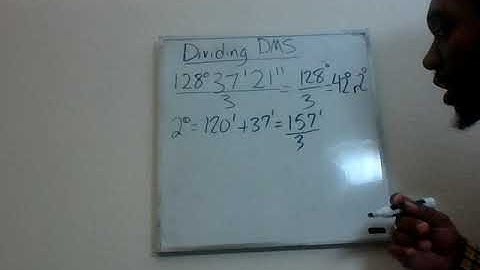 Dividing DMS
128°37'21"/3 = 128°/3 = 42°r2°
2° = 120' + 37' = 157'/3